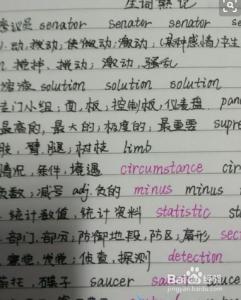 生词熟记
参议员 senator senator senator se
动,拨动,使微动;激动,(某种感情)产生
搅拌、搅动;激动,骚乱
溶液 solution solution solution
专门小组;面,板;控制板,仪表盘 pan
最高的,最大的;极度的,最重要 supre
肢,臂,腿;树枝 limb
情况,条件,境遇 circumstance cir
负数;减号 adj.负的 minus minus
统计数值,统计资料 statistic st
部门,部分;防御地段,防区;扇形 sec
察觉,发觉,侦查,探测 detection
茶花,碟子 saucer saucer
Baidu 经验
jingyan.baidu.com